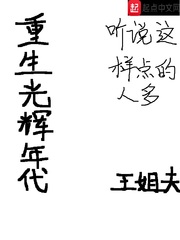 起点中文网
重生光辉年代
听说这
样点的
人多
王姐夫